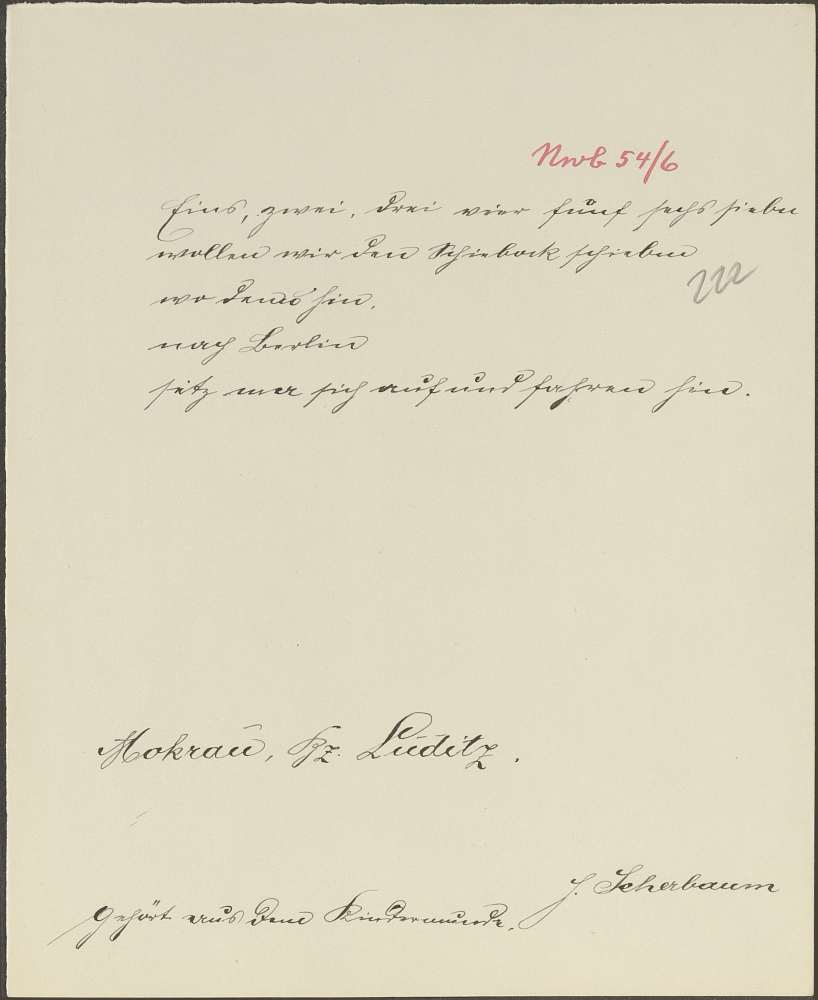 Nwb 54/6
Eins, zwei, drei vier fünf sechs siebn
wollen wir den Schiebock schiebn
222
wo denn hin,
nach Berlin
setz mer sich auf und fahren hin.
Mokrau, Bz. Luditz.
J. Scherbaum
Gehört aus dem Kindermunde.